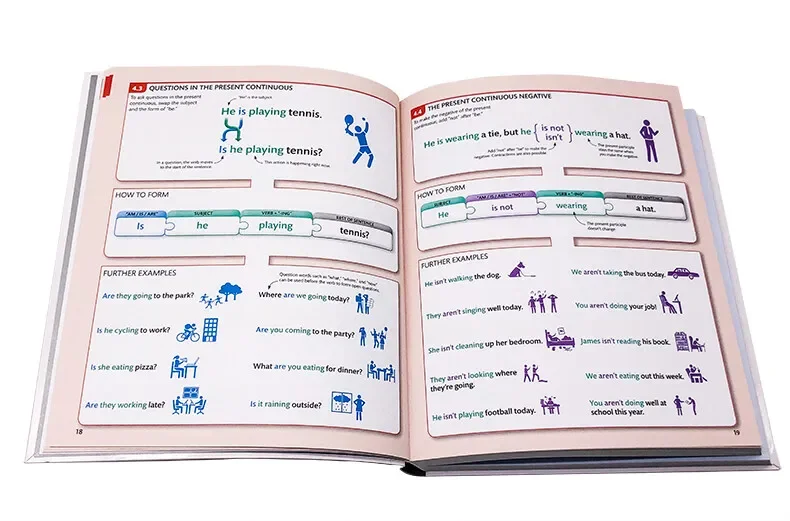 4.3 QUESTIONS IN THE PRESENT CONTINUOUS
To ask questions in the present
continuous, swap the subject
and the form of "be."
"He" is the subject.
He is playing tennis.
Is he playing tennis?
In a question, the verb moves
to the start of the sentence.
This action is happening right now.
HOW TO FORM
"AM / IS / ARE"
SUBJECT
VERB + "-ING"
REST OF SENTENCE
Is
he
playing
tennis?
FURTHER EXAMPLES
Question words such as "what," "where," and "how"
can be used before the verb to form open questions.
Are they going to the park?
Where are we going today?
Is he cycling to work?
Are you coming to the party?
Is she eating pizza?
What are you eating for dinner?
Are they working late?
Is it raining outside?
18
4.4 THE PRESENT CONTINUOUS NEGATIVE
To make the negative of the present
continuous, add "not" after "be."
He is wearing a tie, but he { is not
isn't } wearing a hat.
Add "not" after "be" to make the
negative. Contractions are also possible.
The present participle
stays the same when
you make the negative.
HOW TO FORM
SUBJECT
"AM / IS / ARE" + "NOT"
VERB + "-ING"
REST OF SENTENCE
He
is not
wearing
a hat.
The present participle
doesn't change.
FURTHER EXAMPLES
He isn't walking the dog.
We aren't taking the bus today.
They aren't singing well today.
You aren't doing your job!
She isn't cleaning up her bedroom.
James isn't reading his book.
They aren't looking where
they're going.
We aren't eating out this week.
He isn't playing football today.
You aren't doing well at
school this year.
19